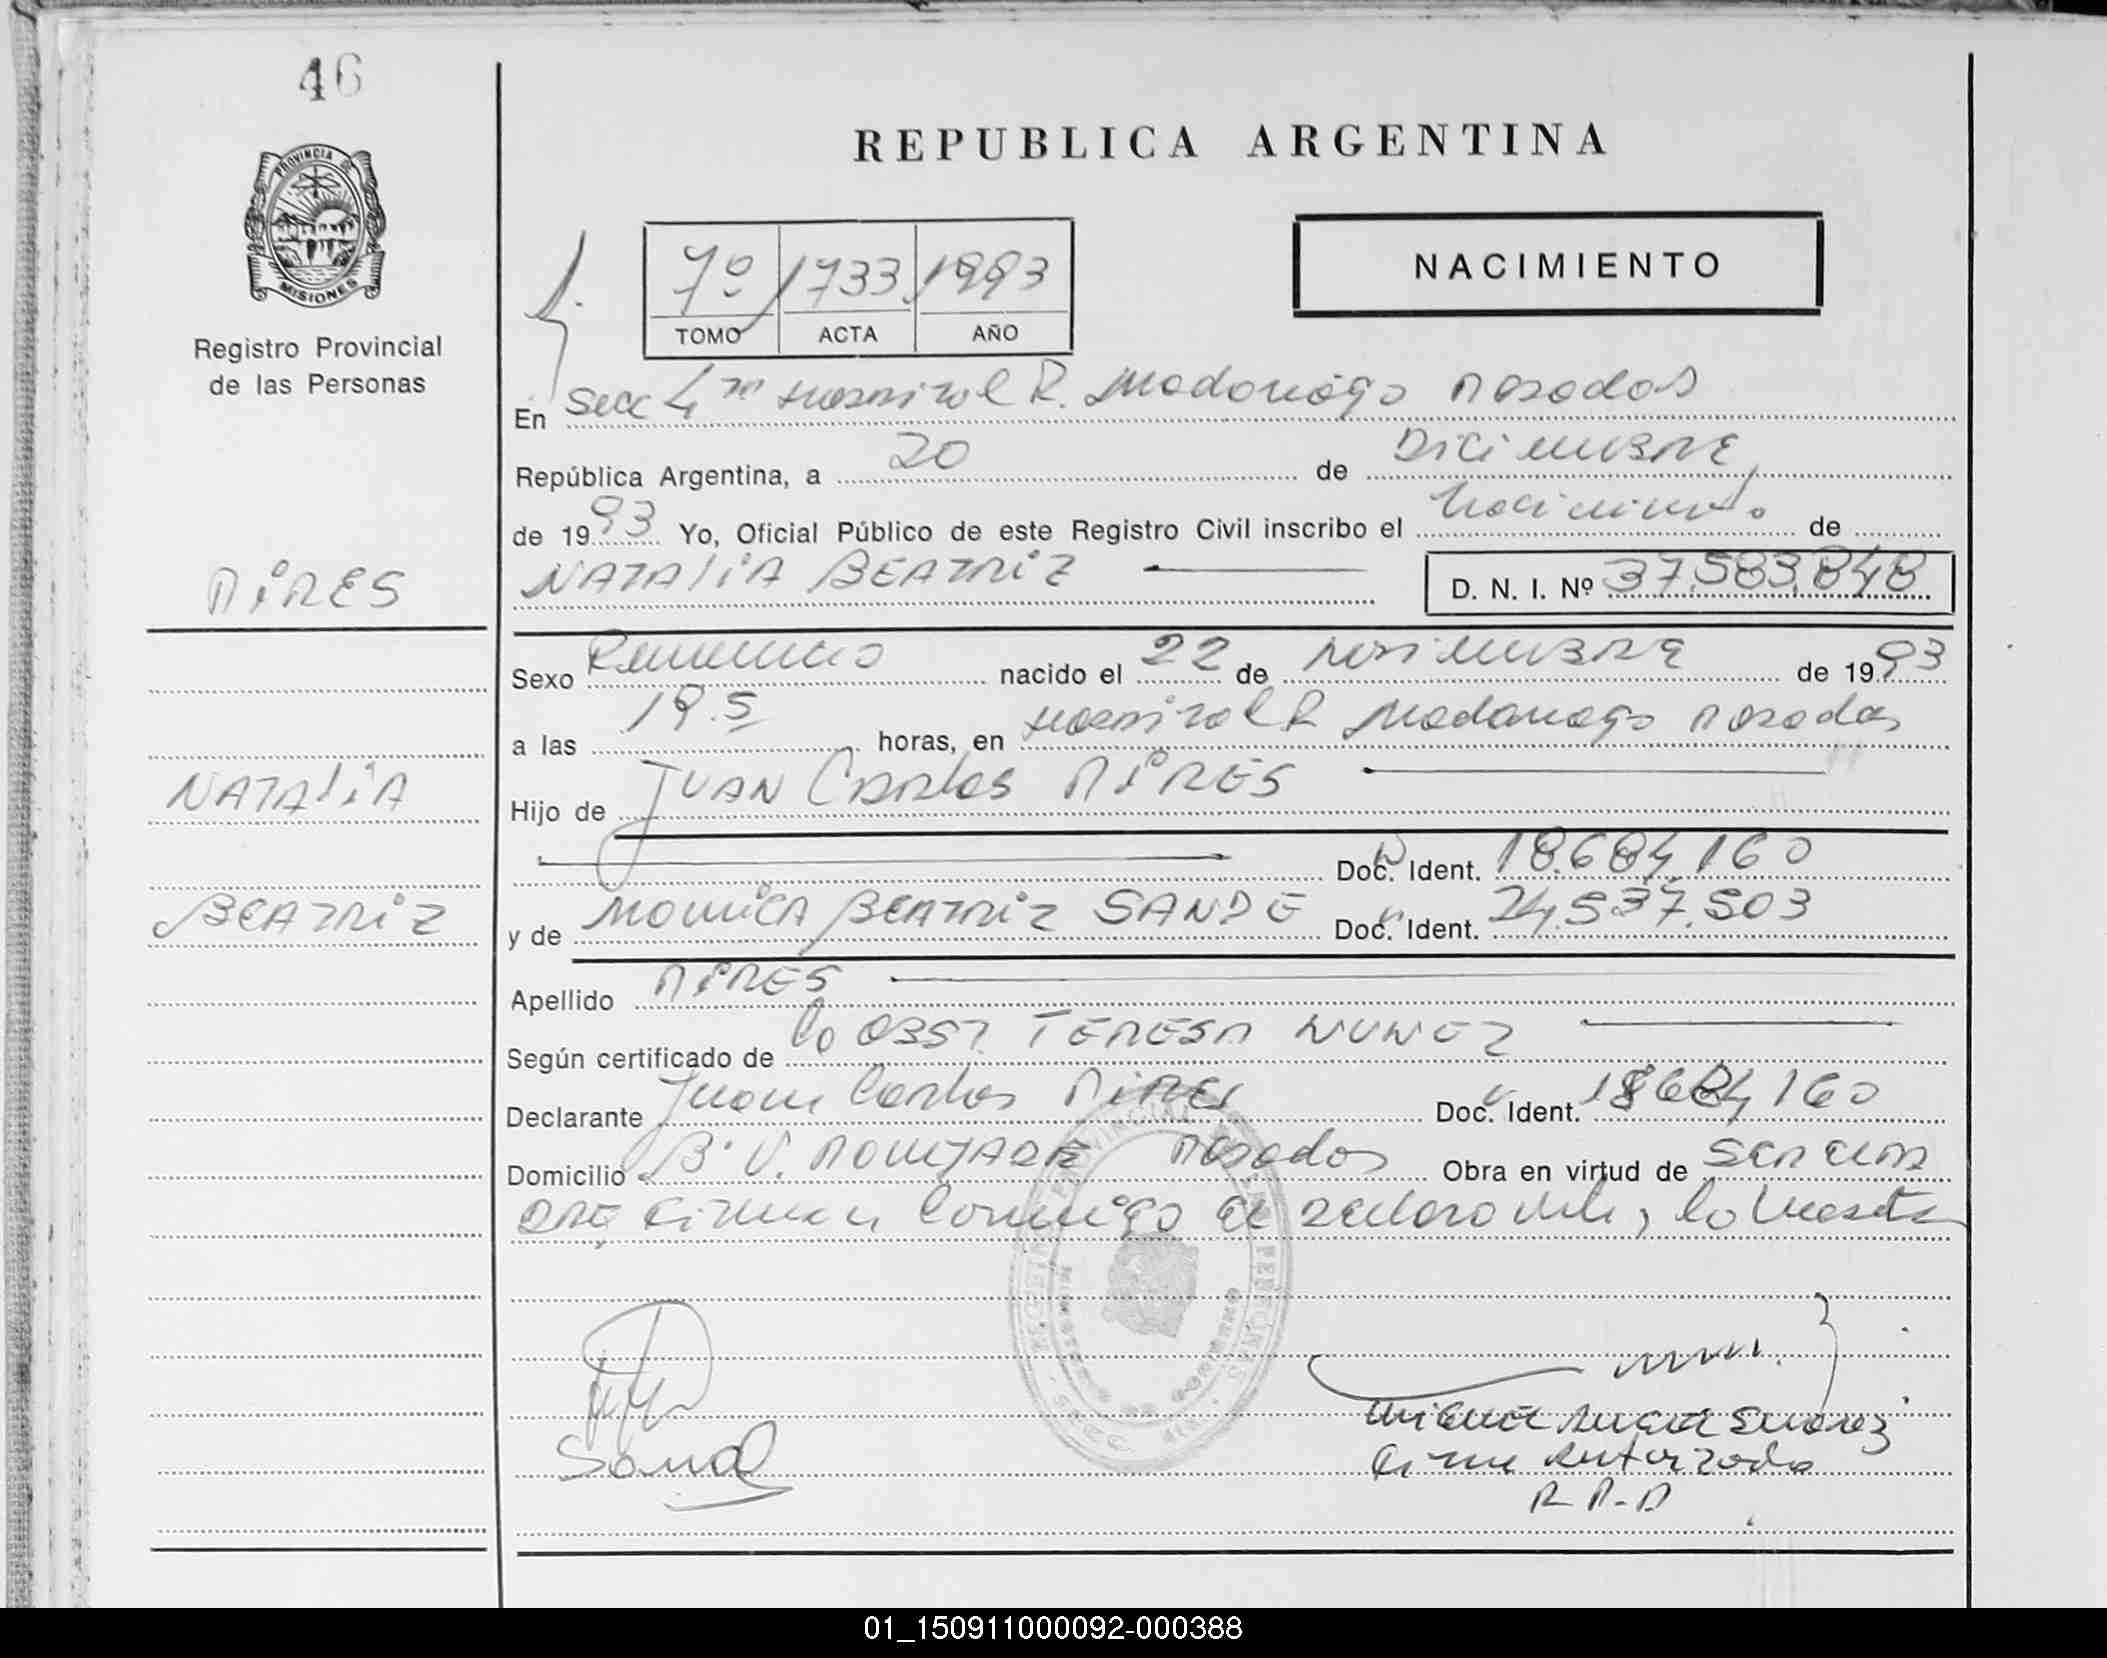 46
PROVINCIA DE
MISIONES
Registro Provincial
de las Personas
REPUBLICA ARGENTINA
7º 1733 1993
TOMO ACTA AÑO
NACIMIENTO
En Secc 4ta Hospital R. Madariaga Posadas
República Argentina, a 20 de Diciembre
de 1993 Yo, Oficial Público de este Registro Civil inscribo el Nacimiento de
PIRES
NATALIA BEATRIZ D. N. I. Nº 37.583.848
Sexo Femenino nacido el 22 de Noviembre de 1993
a las 19.5 horas, en Hospital R Madariaga Posadas
NATALIA
Hijo de JUAN Carlos PIRES
Doc. Ident. 18.684.160
BEATRIZ
y de MONICA BEATRIZ SANDE Doc. Ident. 24.537.503
Apellido PIRES
Según certificado de la OBST. TERESA NUNEZ
Declarante Juan Carlos PIRES Doc. Ident. 18684160
Domicilio B. V. Posadas Obra en virtud de
conmigo el declarante, la
Sand
Miguel Angel Suarez
Firma Autorizada
R. P. P
01_150911000092-000388